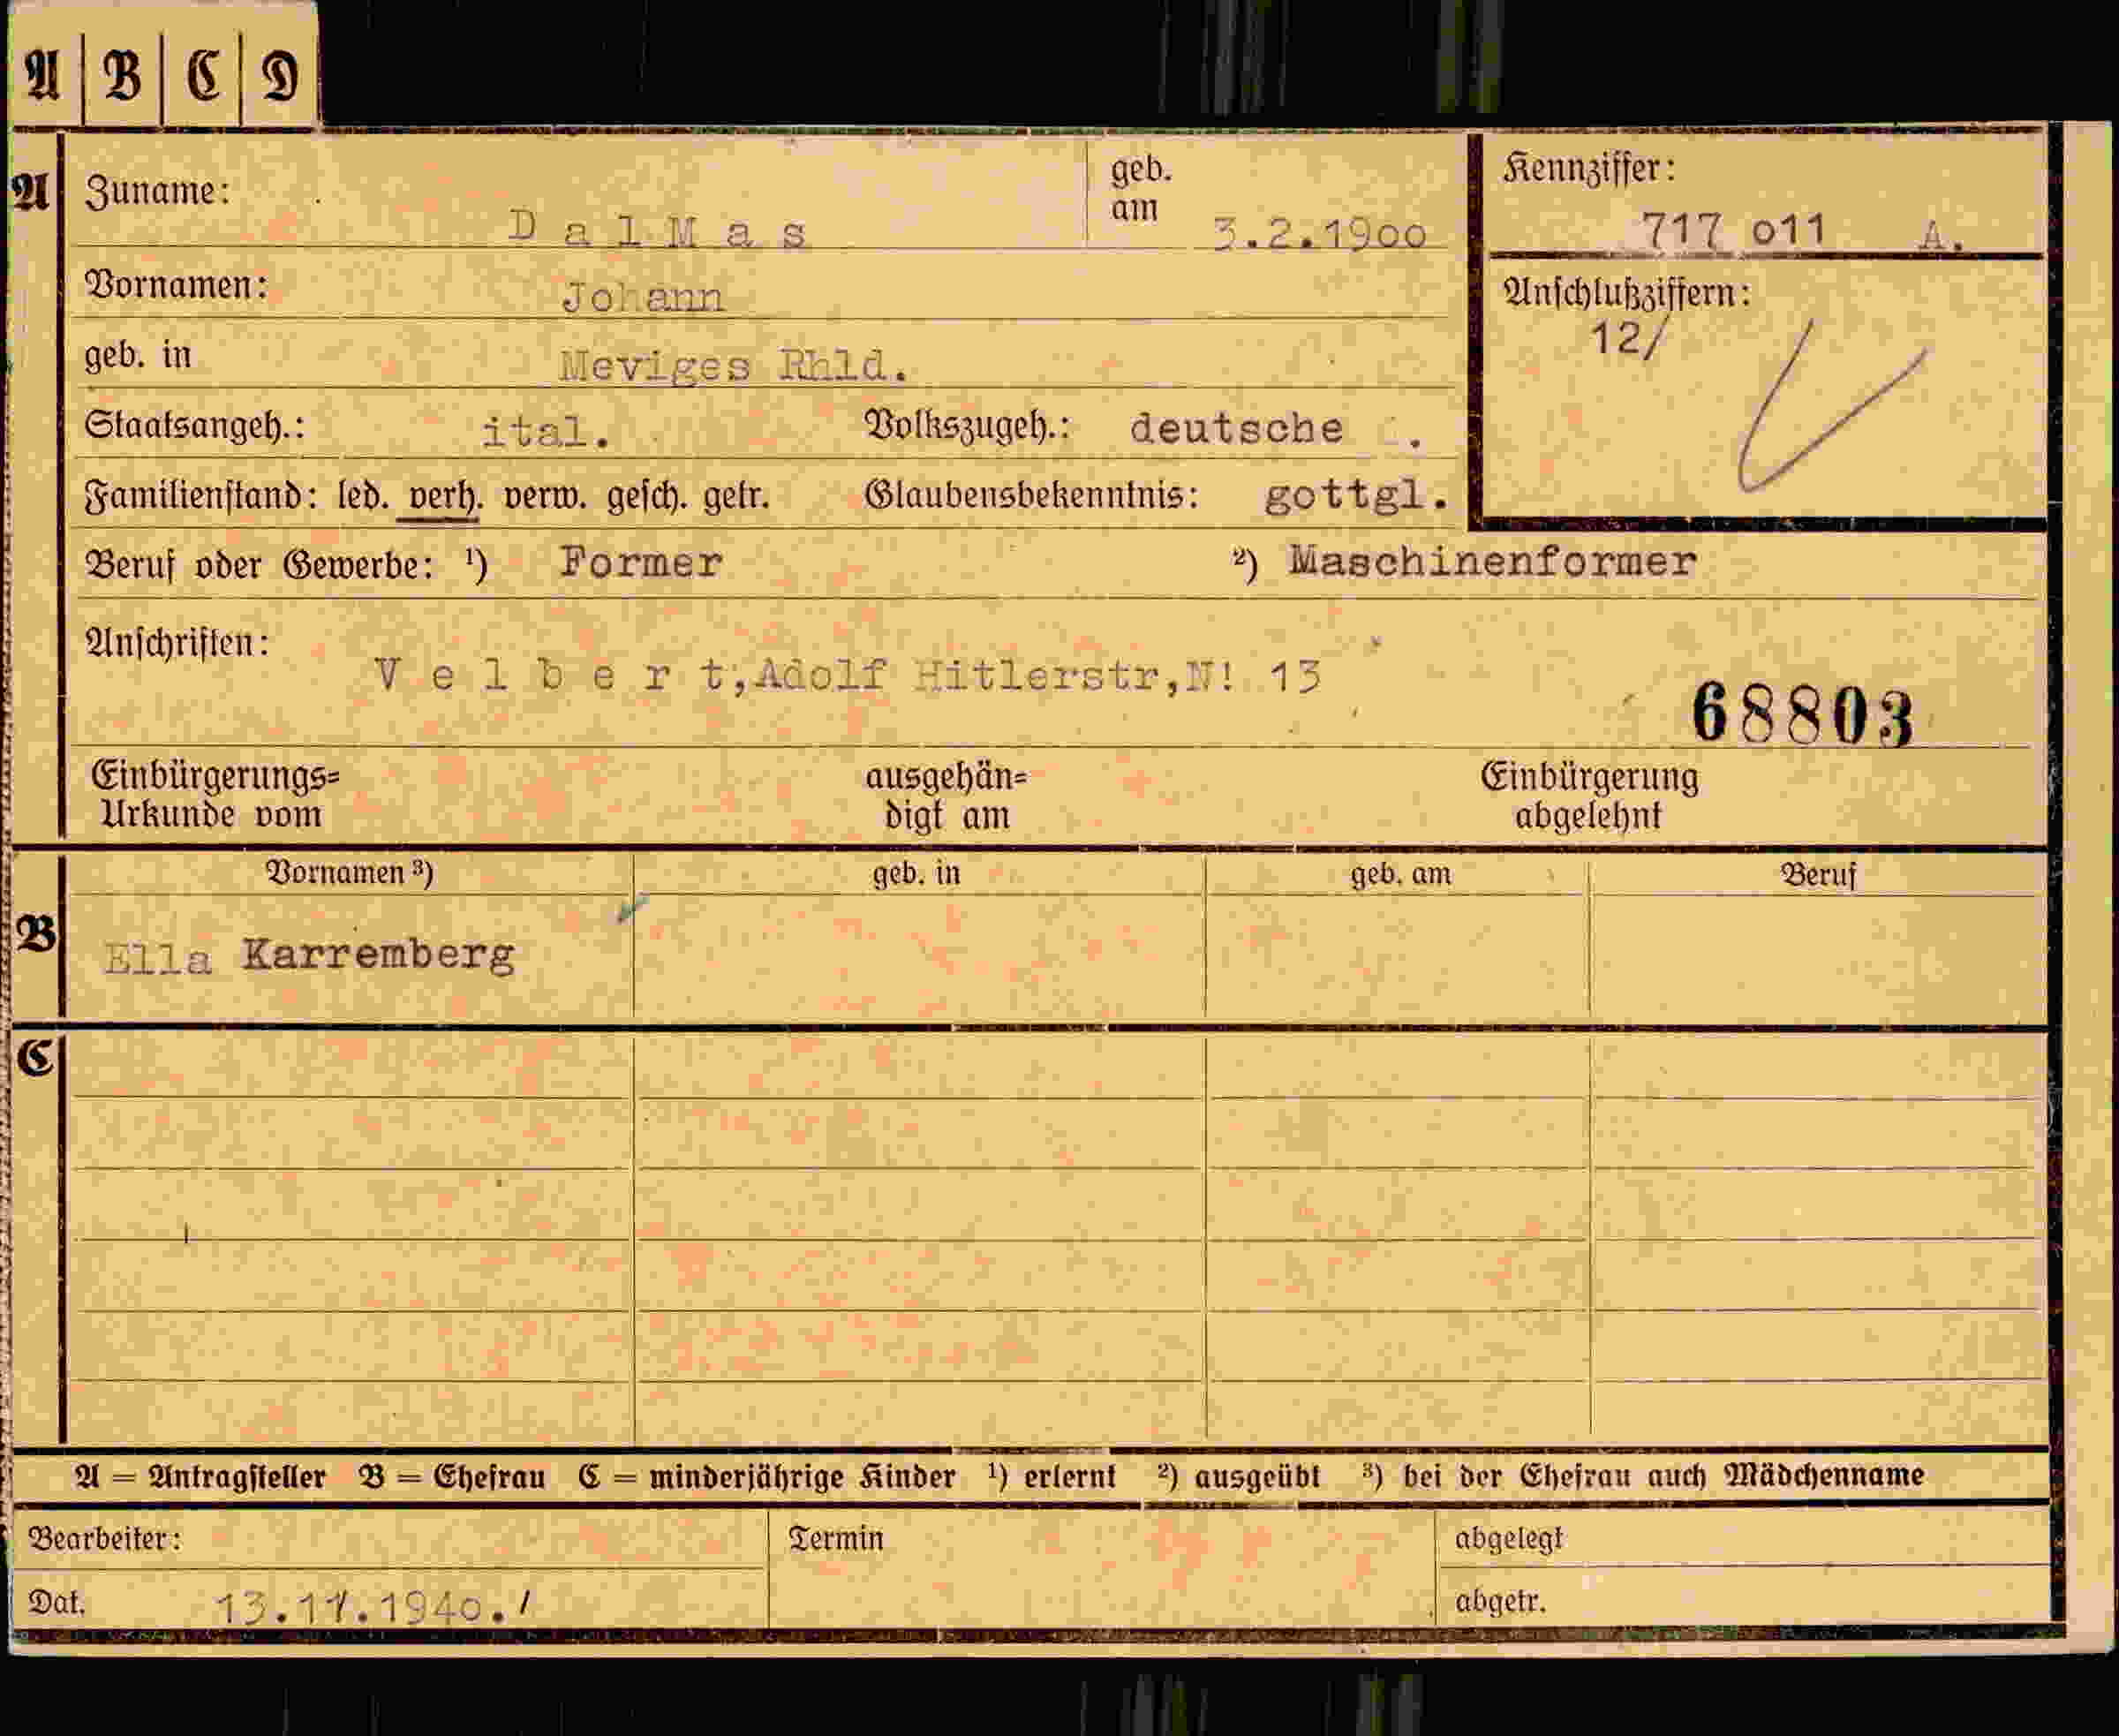 A B C D
A Zuname: D a l M a s geb. am 3.2.1900
Kennziffer: 717 011 A.
Vornamen: Johann
Anschlußziffern: 12/
geb. in Meviges Rhld.
Staatsangeh.: ital. Volkszugeh.: deutsche .
Familienstand: led. verh. verw. gesch. getr. Glaubensbekenntnis: gottgl.
Beruf oder Gewerbe: ¹) Former ²) Maschinenformer
Anschriften: V e l b e r t,Adolf Hitlerstr,N! 13
68803
Einbürgerungs= Urkunde vom ausgehän= digt am Einbürgerung abgelehnt
Vornamen ³) geb. in geb. am Beruf
B Ella Karremberg
C
A = Antragsteller B = Ehefrau C = minderjährige Kinder ¹) erlernt ²) ausgeübt ³) bei der Ehefrau auch Mädchenname
Bearbeiter: Termin abgelegt
Dat. 13.11.1940. abgetr.